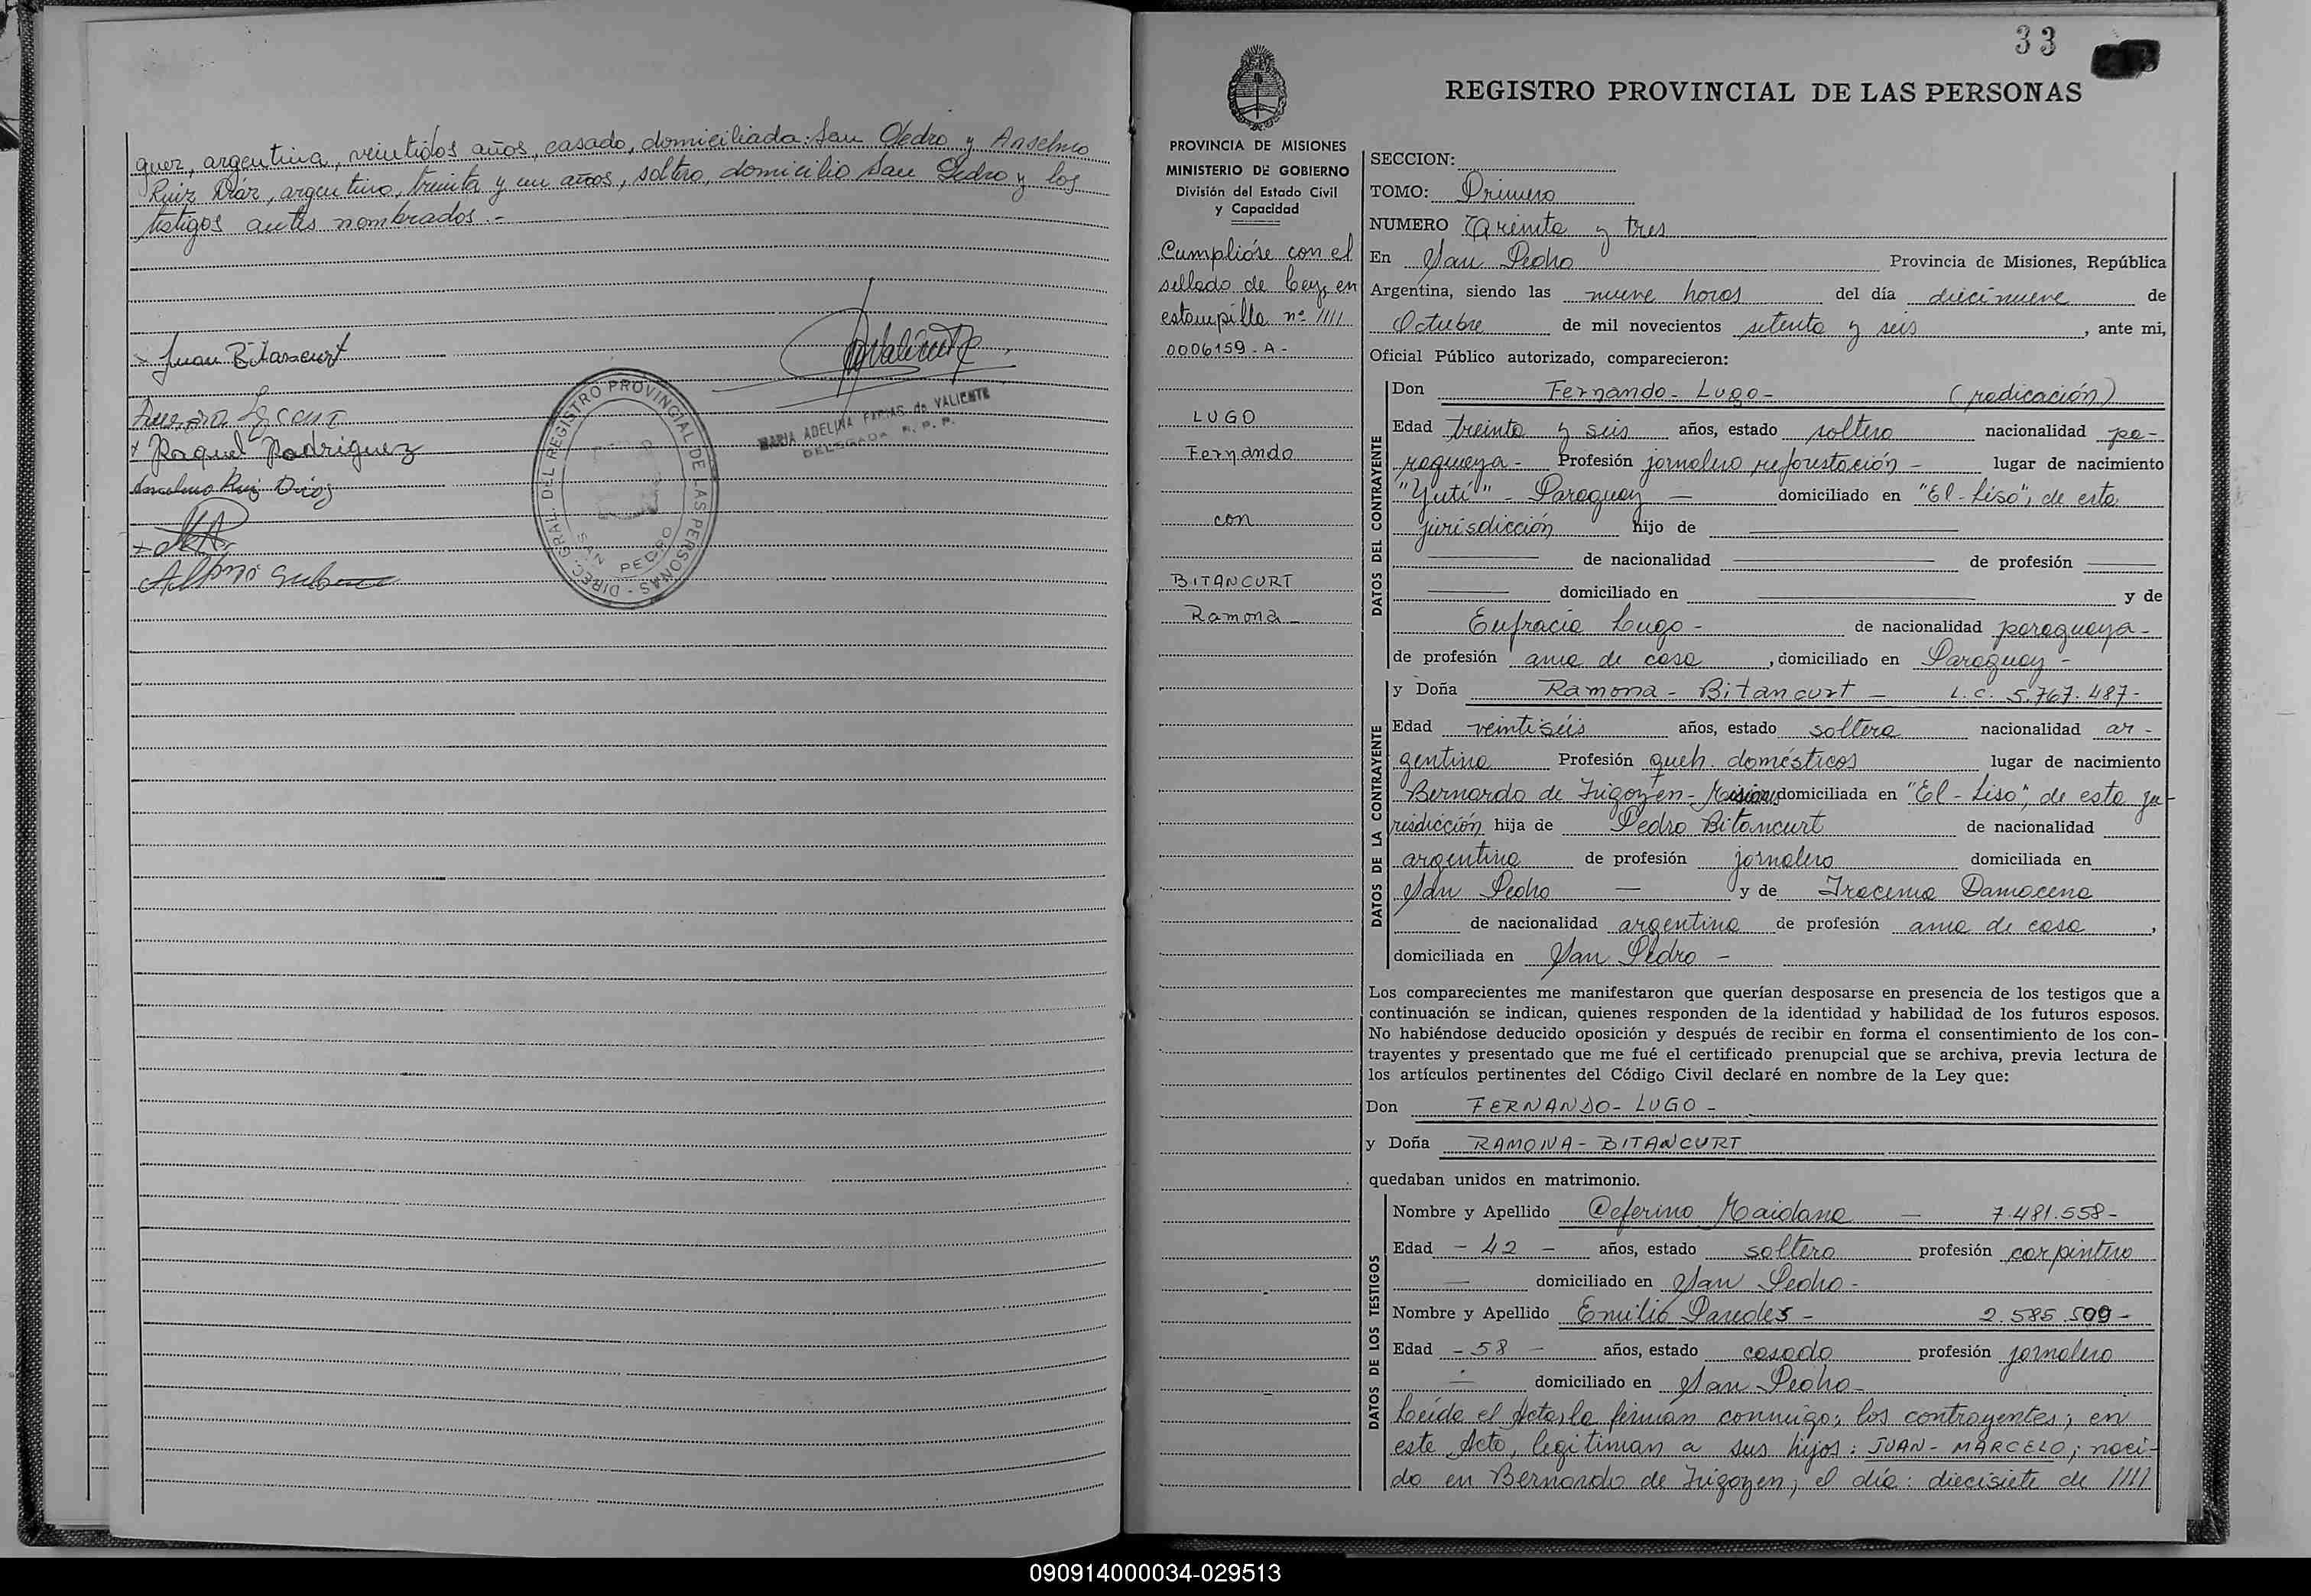 guez, argentina, veintidos años, casado, domiciliada: San Pedro y Anselmo
Ruiz Díaz, argentino, treinta y un años, soltero, domicilio San Pedro y los
testigos antes nombrados.-
Juan Bitancurt
Raquel Rodriguez
Anselmo Ruiz Diaz
MARIA ADELINA FARIAS de VALIENTE
DELEGADA R. P. P.
DIREC. GRAL. DEL REGISTRO PROVINCIAL DE LAS PERSONAS -
SAN PEDRO
33
REGISTRO PROVINCIAL DE LAS PERSONAS
PROVINCIA DE MISIONES
MINISTERIO DE GOBIERNO
División del Estado Civil
y Capacidad
Cumplióse con el
sellado de Ley, en
estampilla nº ////
0006159-A-
LUGO
Fernando
con
BITANCURT
Ramona-
SECCION:
TOMO: Primero
NUMERO Treinta y tres
En San Pedro Provincia de Misiones, República
Argentina, siendo las nueve horas del día diecinueve de
Octubre de mil novecientos setenta y seis, ante mi,
Oficial Público autorizado, comparecieron:
DATOS DEL CONTRAYENTE
Don Fernando - Lugo - (radicación)
Edad treinta y seis años, estado soltero nacionalidad pa-
raguaya - Profesión jornalero reforestación - lugar de nacimiento
"Yutí" - Paraguay — domiciliado en "El - Liso", de esta
jurisdicción hijo de ———
——— de nacionalidad ——— de profesión ———
——— domiciliado en ——— y de
Eufracia Lugo - de nacionalidad paraguaya -
de profesión ama de casa, domiciliado en Paraguay -
DATOS DE LA CONTRAYENTE
y Doña Ramona - Bitancurt — L.C. 5.767.487-
Edad veintiséis años, estado soltera nacionalidad ar-
gentina Profesión queh. domésticos lugar de nacimiento
Bernardo de Irigoyen - Misiones domiciliada en "El - Liso", de esta ju-
risdicción hija de Pedro Bitancurt de nacionalidad
argentina de profesión jornalero domiciliada en
San Pedro — y de Iracema Damacena
de nacionalidad argentina de profesión ama de casa,
domiciliada en San Pedro -
Los comparecientes me manifestaron que querían desposarse en presencia de los testigos que a
continuación se indican, quienes responden de la identidad y habilidad de los futuros esposos.
No habiéndose deducido oposición y después de recibir en forma el consentimiento de los con-
trayentes y presentado que me fué el certificado prenupcial que se archiva, previa lectura de
los artículos pertinentes del Código Civil declaré en nombre de la Ley que:
Don FERNANDO - LUGO -
y Doña RAMONA - BITANCURT
quedaban unidos en matrimonio.
DATOS DE LOS TESTIGOS
Nombre y Apellido Ceferino Maidana — 7.481.558-
Edad - 42 - años, estado soltero profesión carpintero
— domiciliado en San Pedro -
Nombre y Apellido Emilio Paredes - 2.585.599-
Edad - 58 - años, estado casado profesión jornalero
— domiciliado en San Pedro -
Leída el Acta, la firman conmigo; los contrayentes; en
este Acto, legitiman a sus hijos: JUAN - MARCELO; naci-
do en Bernardo de Irigoyen; el día: diecisiete de ////
090914000034-029513